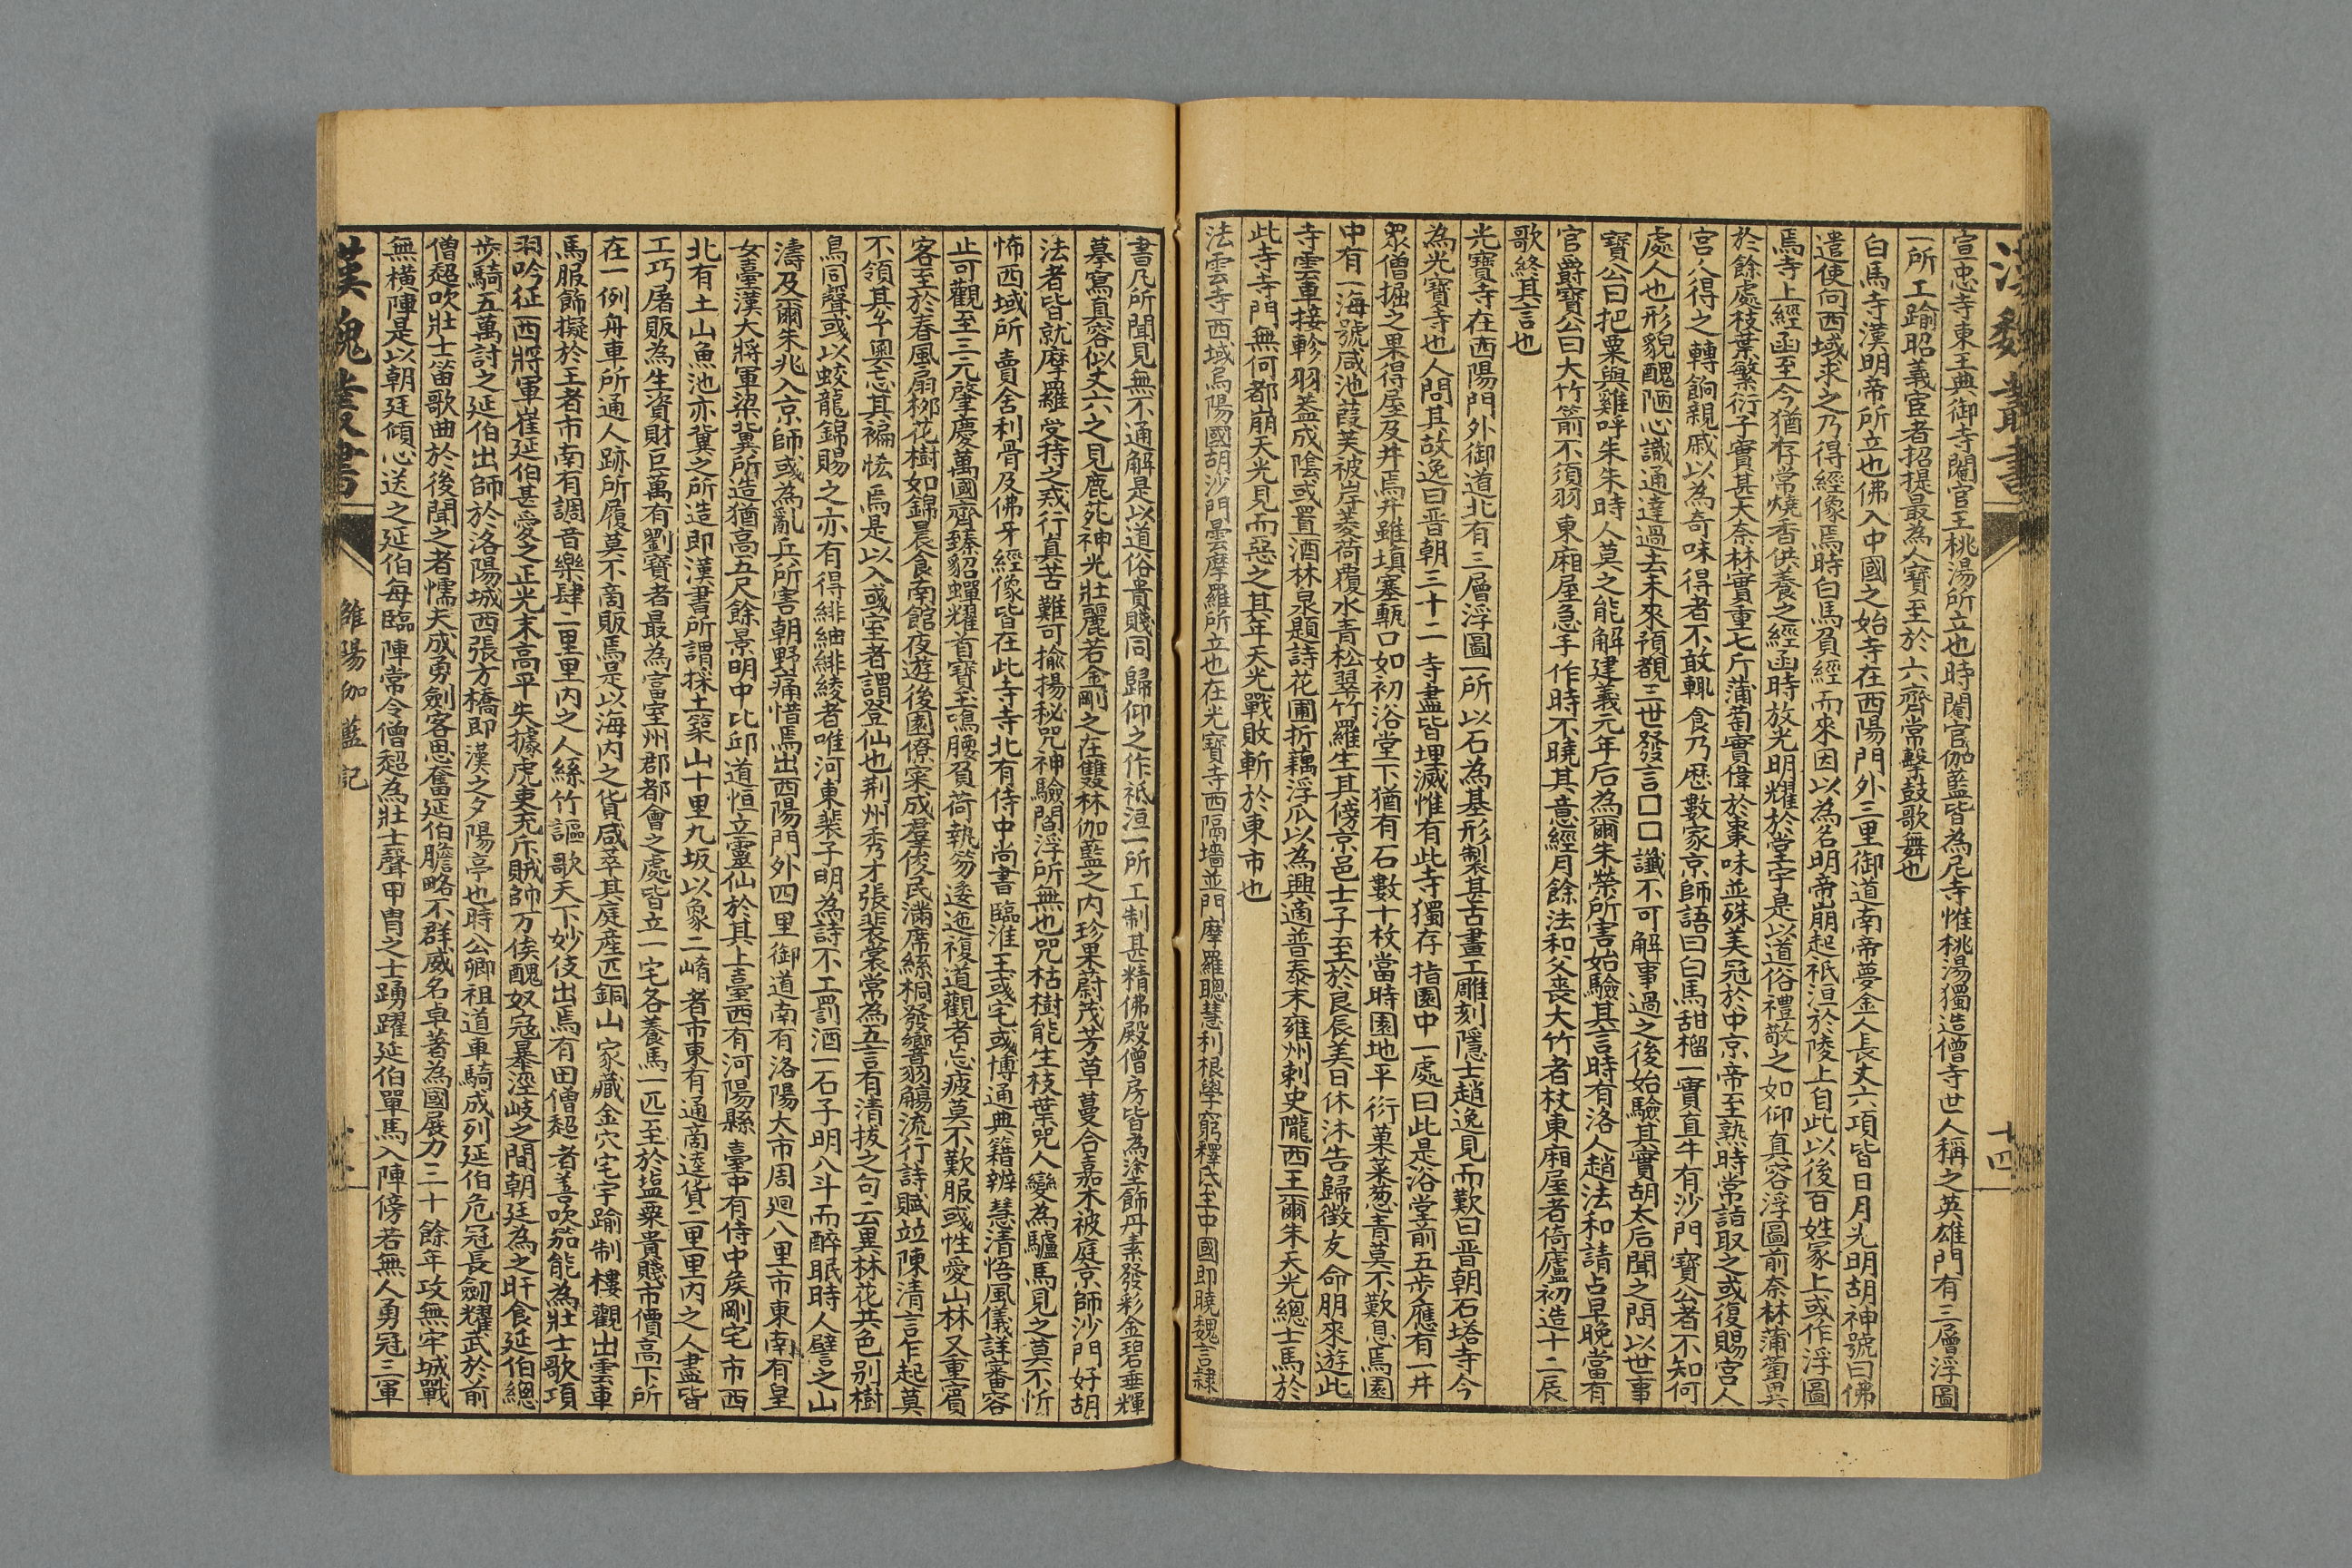 漢魏叢書
十四
宣忠寺東王典御寺閹官王桃湯所立也時閹官伽藍皆為尼寺惟桃湯獨造僧寺世人稱之英雄門有三層浮圖
一所工踰昭義宦者招提最為人寶至於六齊常擊鼓歌舞也
白馬寺漢明帝所立也佛入中國之始寺在西陽門外三里御道南帝夢金人長丈六項皆日月光明胡神號曰佛
遣使向西域求之乃得經像焉時白馬負經而來因以為名明帝崩起祇洹於陵上自此以後百姓冢上或作浮圖
焉寺上經函至今猶存常燒香供養之經函時放光明耀於堂宇是以道俗禮敬之如仰真容浮圖前奈林蒲萄異
於餘處枝葉繁衍子實甚大奈林實重七斤蒲萄實偉於棗味並殊美冠於中京帝至熟時常詣取之或復賜宮人
宮人得之轉餉親戚以為奇味得者不敢輒食乃歷數家京師語曰白馬甜榴一實直牛有沙門寶公者不知何
處人也形貌醜陋心識通達過去未來預覩三世發言□□讖不可解事過之後始驗其實胡太后聞之問以世事
寶公曰把粟與雞呼朱朱時人莫之能解建義元年后為爾朱榮所害始驗其言時有洛人趙法和請占早晚當有
官爵寶公曰大竹箭不須羽東廂屋急手作時不曉其意經月餘法和父喪大竹者杖東廂屋者倚廬初造十二辰
歌終其言也
光寶寺在西陽門外御道北有三層浮圖一所以石為基形製甚古畫工雕刻隱士趙逸見而歎曰晋朝石塔寺今
為光寶寺也人問其故逸曰晋朝三十二寺盡皆埋滅惟有此寺獨存指園中一處曰此是浴堂前五步應有一井
眾僧掘之果得屋及井焉井雖填塞甎口如初浴堂下猶有石數十枚當時園地平衍菓菜葱青莫不歎息焉園
中有一海號咸池葭芙被岸菱荷覆水青松翠竹羅生其傍京邑士子至於良辰美日休沐告歸徵友命朋來遊此
寺雲車接軫羽蓋成陰或置酒林泉題詩花圃折藕浮瓜以為興適普泰末雍州刺史隴西王爾朱天光總士馬於
此寺寺門無何都崩天光見而惡之其年天光戰敗斬於東市也
法雲寺西域烏陽國胡沙門曇摩羅所立也在光寶寺西隔墻並門摩羅聰慧利根學窮釋氏至中國即曉魏言隸
書凡所聞見無不通解是以道俗貴賤同歸仰之作祗洹一所工制甚精佛殿僧房皆為塗飾丹素發彩金碧垂輝
摹寫真容似丈六之見鹿苑神光壯麗若金剛之在雙林伽藍之內珍果蔚茂芳草蔓合嘉木被庭京師沙門好胡
法者皆就摩羅受持之戒行真苦難可揄揚秘咒神驗閻浮所無也咒枯樹能生枝葉咒人變為驢馬見之莫不忻
怖西域所賣舍利骨及佛牙經像皆在此寺寺北有侍中尚書臨淮王彧宅彧博通典籍辨慧清悟風儀詳審容
止可觀至三元肇慶萬國齊臻貂蟬耀首寶玉鳴腰負荷執笏逶迤複道觀者忘疲莫不歎服彧性愛山林又重賓
客至於春風扇柳花樹如錦晨食南館夜遊後園僚寀成羣俊民滿席絲桐發響羽觴流行詩賦並陳清言乍起莫
不領其玄奧忘其褊恡焉是以入彧室者謂登仙也荊州秀才張裴裳常為五言有清拔之句云異林花共色別樹
鳥同聲彧以蛟龍錦賜之亦有得緋紬緋綾者唯河東裴子明為詩不工罰酒一石子明八斗而醉眠時人譬之山
濤及爾朱兆入京師彧為亂兵所害朝野痛惜焉出西陽門外四里御道南有洛陽大市周廻八里市東南有皇
女臺漢大將軍梁冀所造猶高五尺餘景明中比邱道恒立靈仙於其上臺西有河陽縣臺中有侍中侯剛宅市西
北有土山魚池亦冀之所造即漢書所謂採土築山十里九坂以象二崤者市東有通商達貨二里里內之人盡皆
工巧屠販為生資財巨萬有劉寶者最為富室州郡都會之處皆立一宅各養馬一匹至於塩粟貴賤市價高下所
在一例舟車所通人跡所履莫不商販焉是以海內之貨咸萃其庭產匹銅山家藏金穴宅宇踰制樓觀出雲車
馬服飾擬於王者市南有調音樂肆二里里內之人絲竹謳歌天下妙伎出焉有田僧超者善吹笳能為壯士歌項
羽吟征西將軍崔延伯甚愛之正光末高平失據虎吏充斥賊帥万俟醜奴寇暴涇岐之間朝廷為之旰食延伯總
步騎五萬討之延伯出師於洛陽城西張方橋即漢之夕陽亭也時公卿祖道車騎成列延伯危冠長劒耀武於前
僧超吹壯士笛歌曲於後聞之者懦夫成勇劍客思奮延伯膽略不群威名卓著為國展力三十餘年攻無牢城戰
無橫陣是以朝廷傾心送之延伯每臨陣常令僧超為壯士聲甲胄之士踴躍延伯單馬入陣傍若無人勇冠三軍
漢魏叢書
雒陽伽藍記